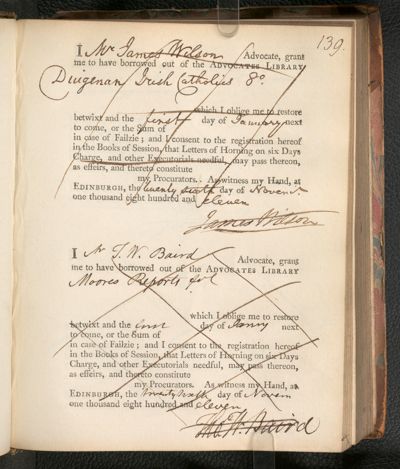 139.
I Mr James Wilson Advocate, grant
me to have borrowed out of the ADVOCATES LIBRARY
Duigenan Irish Catholics 8o
which I oblige me to restore
betwixt and the first day of January next
to come, or the Sum of
in case of Failzie; and I consent to the registration hereof
in the Books of Session, that Letters of Horning on six Days
Charge, and other Executorials needful, may pass thereon,
as effeirs, and thereto constitute
my Procurators. As witness my Hand, at
EDINBURGH, the twenty sixth day of Novemr
one thousand eight hundred and eleven
James Wilson
I Mr J. W. Baird Advocate, grant
me to have borrowed out of the ADVOCATES LIBRARY
Moores Reports fol
which I oblige me to restore
betwixt and the first day of Janry next
to come, or the Sum of
in case of Failzie; and I consent to the registration hereof
in the Books of Session, that Letters of Horning on six Days
Charge, and other Executorials needful, may pass thereon,
as effeirs, and thereto constitute
my Procurators. As witness my Hand, at
EDINBURGH, the twenty sixth day of Novem
one thousand eight hundred and eleven
W. Baird